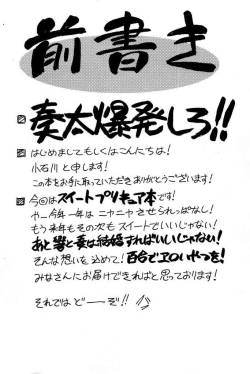 前書き
奏太爆発しろ!!
はじめまして もしくはこんにちは!
小石川と申します!
この本をお手に取っていただきありがとうございます!
今回はスイートプリキュア本です!
やー今年一年はニヤニヤさせられっぱなし!
もう来年もその次もスイートでいいじゃない!
あと響と奏は結婚すればいいじゃない!
そんな想いを込めて!百合でエロいやつを!
みなさんにお届けできればと思っております!
それではどーぞ!!